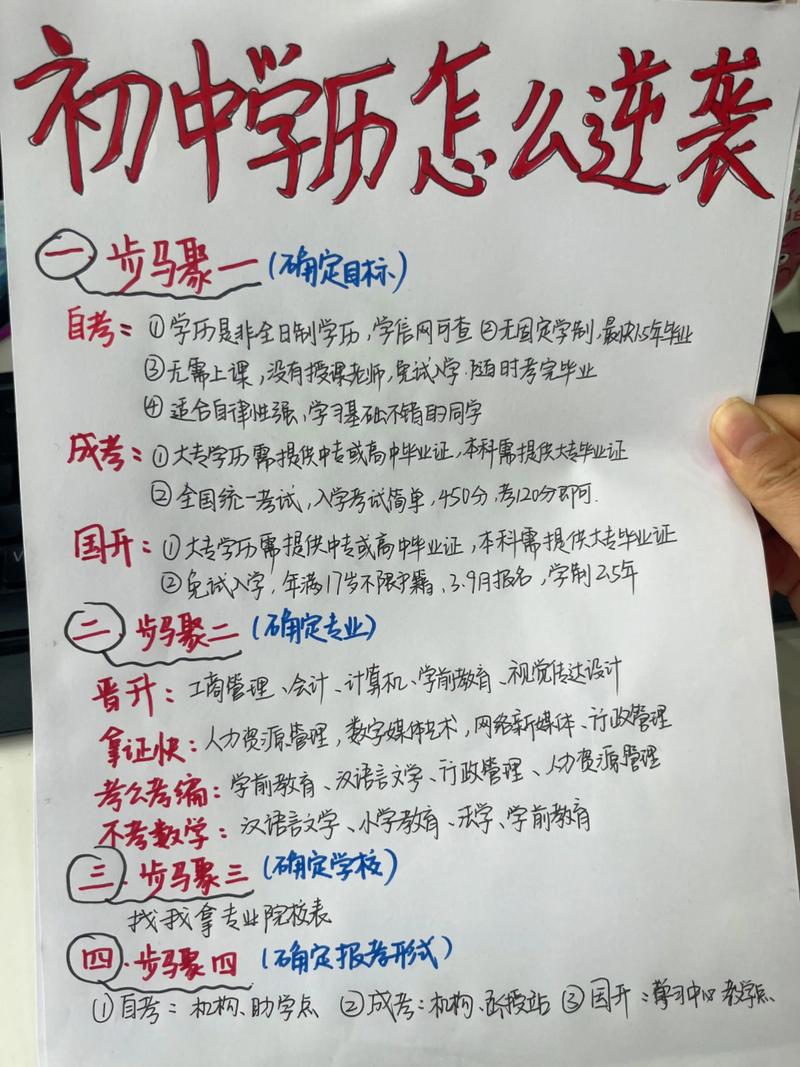 初中学历怎么逆袭
一、步骤一(确定目标)
自考:①学历是非全日制学历,学信网可查②无固定学制,最快1.5年毕业
③无需上课,没有授课老师,免试入学.随时考完毕业
④适合自律性强,学习基础不错的同学
成考:①大专学历需提供中专或高中毕业证,本科需提供大专毕业证
②全国统一考试,入学考试简单,450分,考120分即可.
国开:①大专学历需提供中专或高中毕业证,本科需提供大专毕业证
②免试入学,年满17岁不限户籍、3.9月报名,学制2.5年
二、步骤二(确定专业)
晋升:工商管理、会计、计算机、学前教育、视觉传达设计
拿证快:人力资源管理,数字媒体艺术,网络新媒体、行政管理
考公考编:学前教育、汉语言文学、行政管理、人力资源管理
不考数学:汉语言文学、小学教育、法学、学前教育
三.步骤三(确定学校)
找我拿专业院校表
四.步骤四(确定报考形式)
①自考:机构、助学点 ②成考:机构、函授站 ③国开:学习中心 教学点